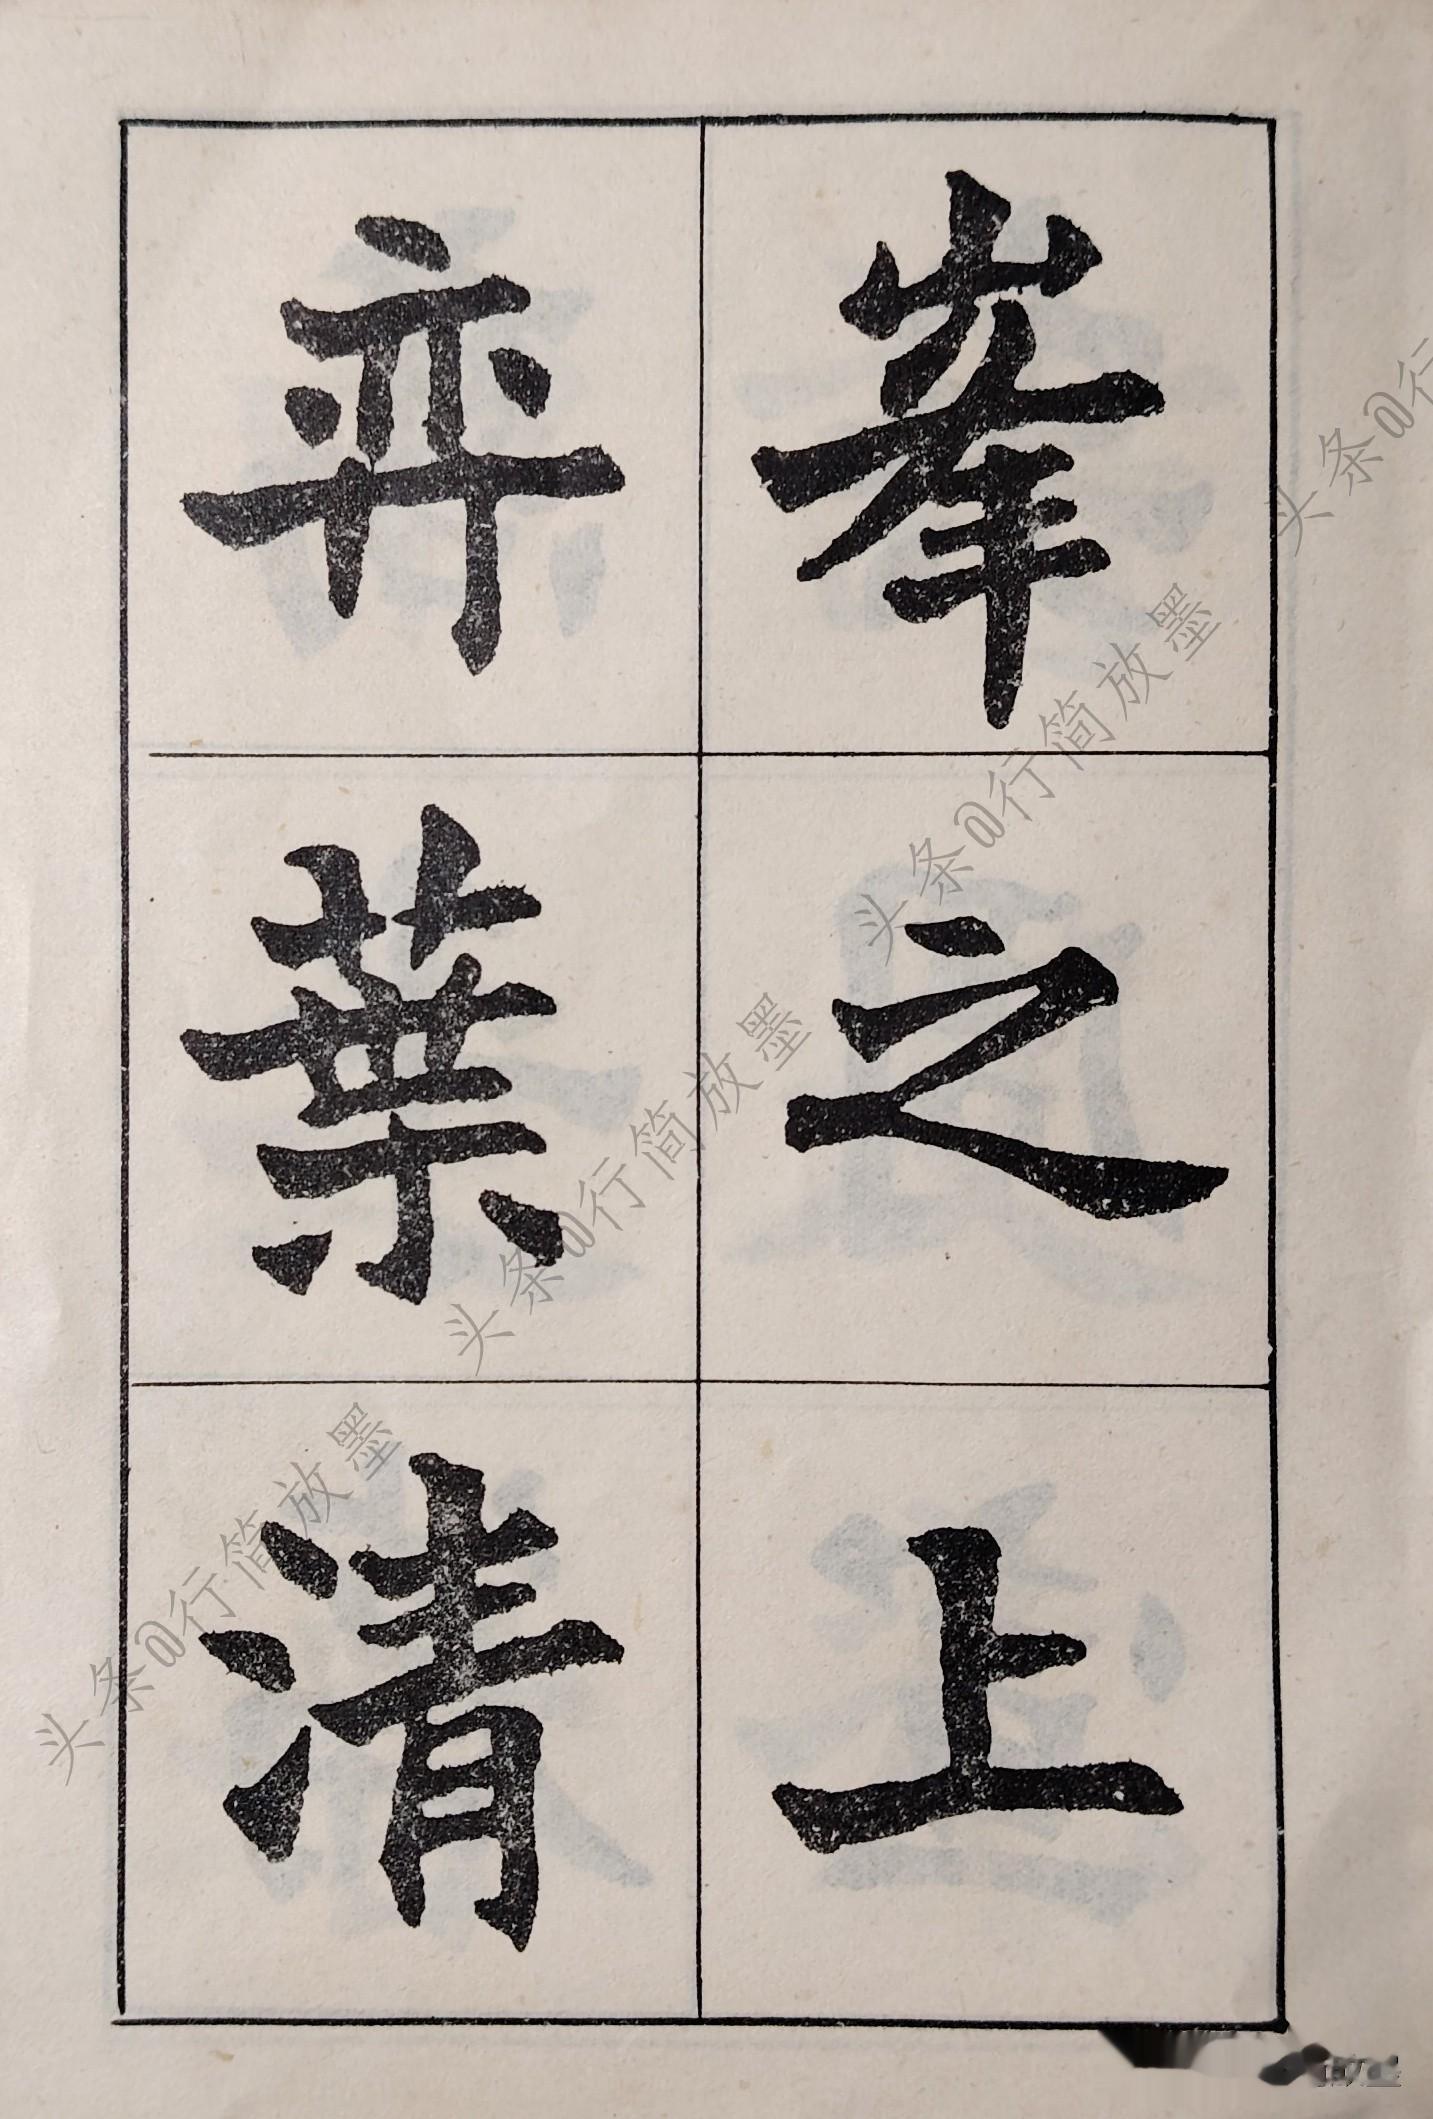 峯之上
弈葉清
头条@行简放墨
头条@行简放墨
头条@行简放墨
头条@行